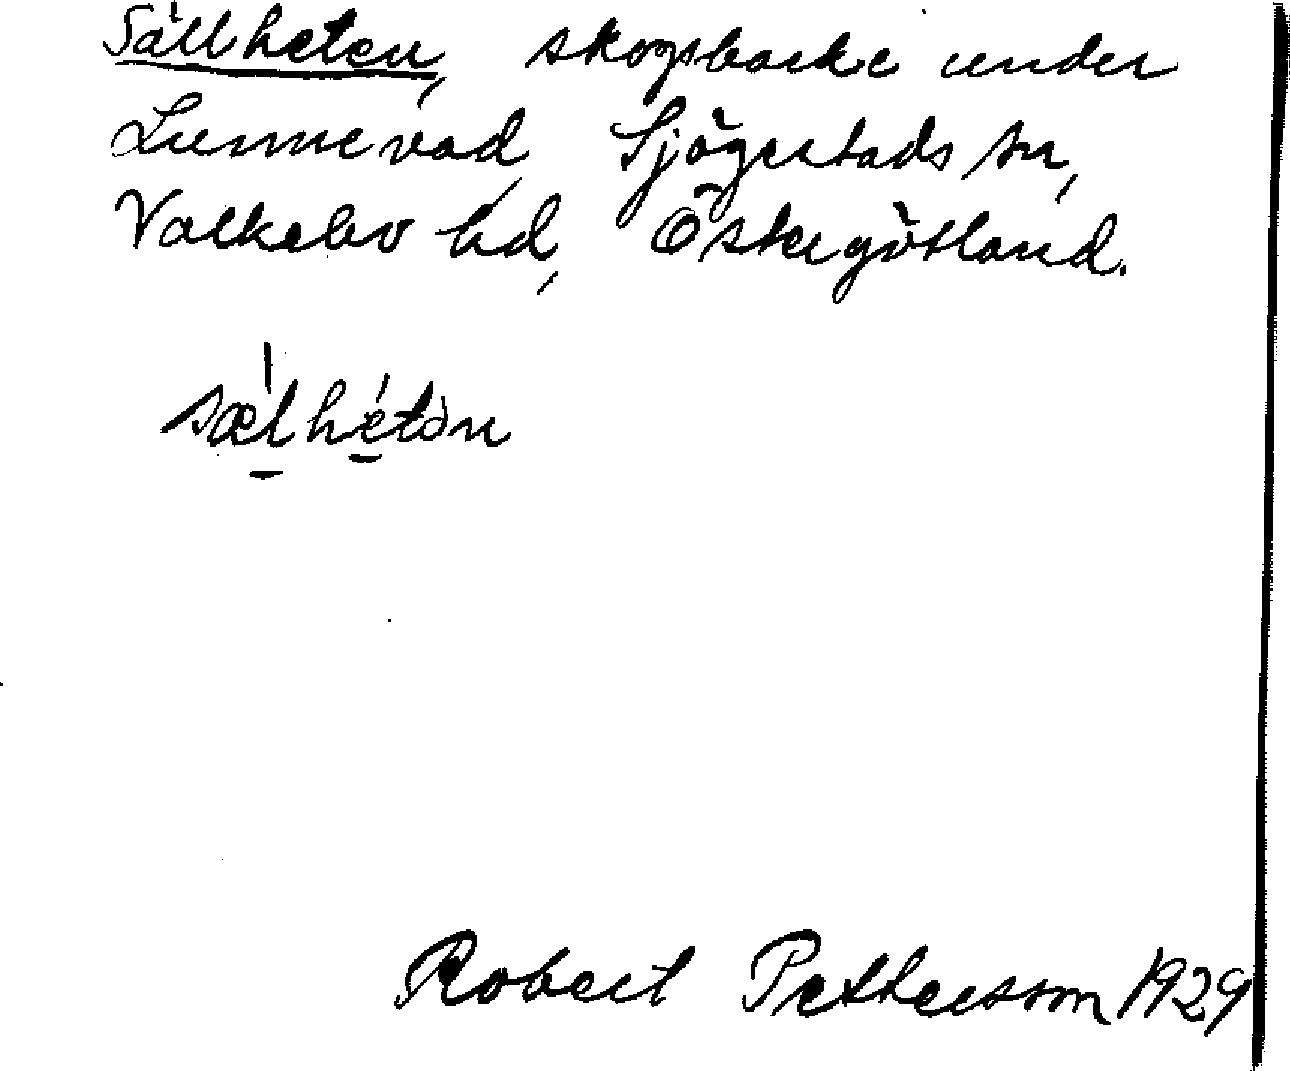 Sällheten, skogsbacke under
Lunnevad, Sjögestads sn,
Valkebo hd, Östergötland.
sælhétən
Robert Pettersson 1929